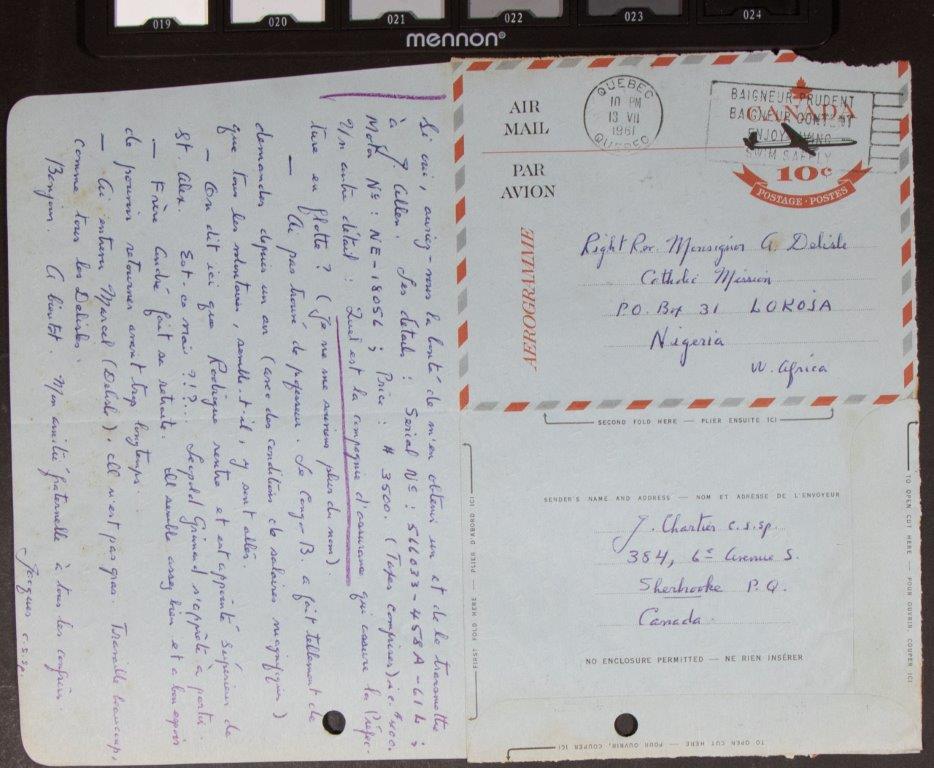 019 020 021 022 023 024
mennon®
AIR
MAIL
PAR
AVION
AEROGRAMME
QUEBEC
10 PM
13 VII
1961
QUEBEC
BAIGNEUR PRUDENT
BAIGNEUR CONTENT
ENJOY LIVING
SWIM SAFELY
CANADA
10¢
POSTAGE · POSTES
Right Rev. Monsignor A. Delisle
Catholic Mission
P.O. Box 31 LOKOJA
Nigeria
W. Africa
SECOND FOLD HERE — PLIER ENSUITE ICI
SENDER'S NAME AND ADDRESS — NOM ET ADRESSE DE L'ENVOYEUR
J. Chartier c.s.sp.
384, 6e Avenue S.
Sherbrooke P.Q.
Canada
NO ENCLOSURE PERMITTED — NE RIEN INSÉRER
FIRST FOLD HERE — PLIER D'ABORD ICI
TO OPEN CUT HERE — POUR OUVRIR, COUPER ICI
TO OPEN CUT HERE — POUR OUVRIR, COUPER ICI
Si oui, auriez-vous la bonté de m'en obtenir un et de le transmettre
à J. Allen. Les détails : Serial No : 566033-458A-614 ;
Moto No : NE-18056 ; Price : $3500. (Taxes comprises) i.e. $400.
Un autre détail : Quel est la compagnie d'assurance qui assure la Préfec-
ture en flotte ? (Je ne me souviens plus du nom).
— Ai pas trouvé de professeur. Le Congo B. a fait tellement de
demandes depuis un an (avec des conditions de salaires magnifiques)
que tous les volontaires, semble-t-il, y sont allés.
— On dit ici que Rodrigue rentre et est appointé Supérieur de
St. Alex. Est-ce vrai ?!?... Léopold Grimard s'apprête à partir.
— Frère André fait sa retraite. Il semble assez bien et a bon espoir
de pouvoir retourner avant trop longtemps.
— Ai entrevu Marcel (Delisle). Il n'est pas gras. Travaille beaucoup,
comme tous les Delisle.
Bonjour. A bientôt. Mon amitié fraternelle à tous les confrères.
Jacques c.s.sp.